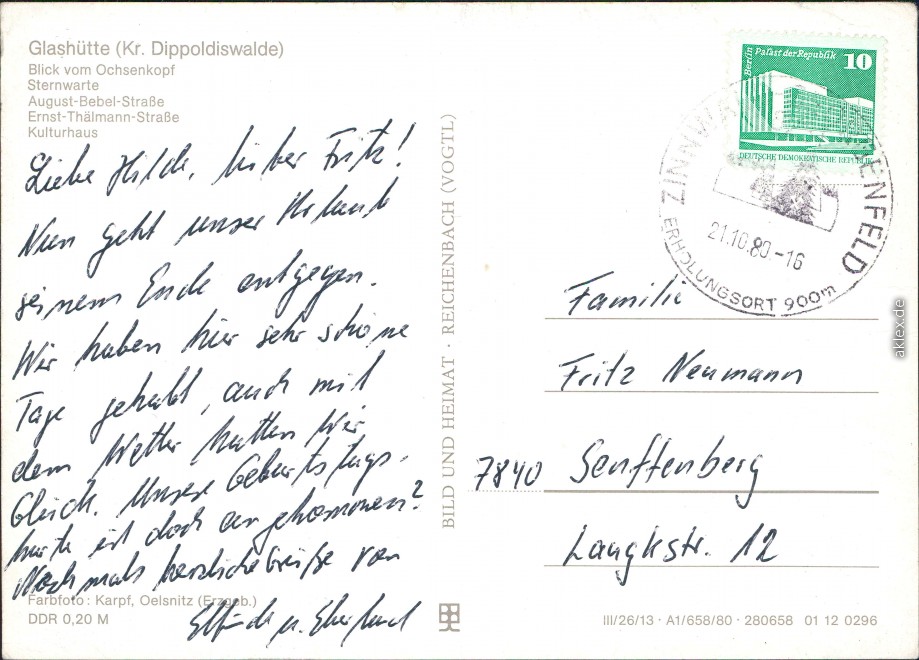 Glashütte (Kr. Dippoldiswalde)
Blick vom Ochsenkopf
Sternwarte
August-Bebel-Straße
Ernst-Thälmann-Straße
Kulturhaus
Liebe Hilde, lieber Fritz!
Nun geht unser Urlaub
seinem Ende entgegen.
Wir haben hier sehr schöne
Tage gehabt, auch mit
dem Wetter hatten wir
Glück. Unsere Geburtstags-
karte ist doch angekommen?
Nochmals herzliche Grüße von
Elfriede u. Eberhard
Farbfoto: Karpf, Oelsnitz (Erzgeb.)
DDR 0,20 M
BILD UND HEIMAT · REICHENBACH (VOGTL)
Berlin Palast der Republik 10
DEUTSCHE DEMOKRATISCHE REPUBLIK
ZINNWA ENFELD
21.10.80.-16
ERHOLUNGSORT 900m
Familie
Fritz Neumann
7840 Senftenberg
Laugkstr. 12
III/26/13 · A1/658/80 · 280658 01 12 0296
aklex.de